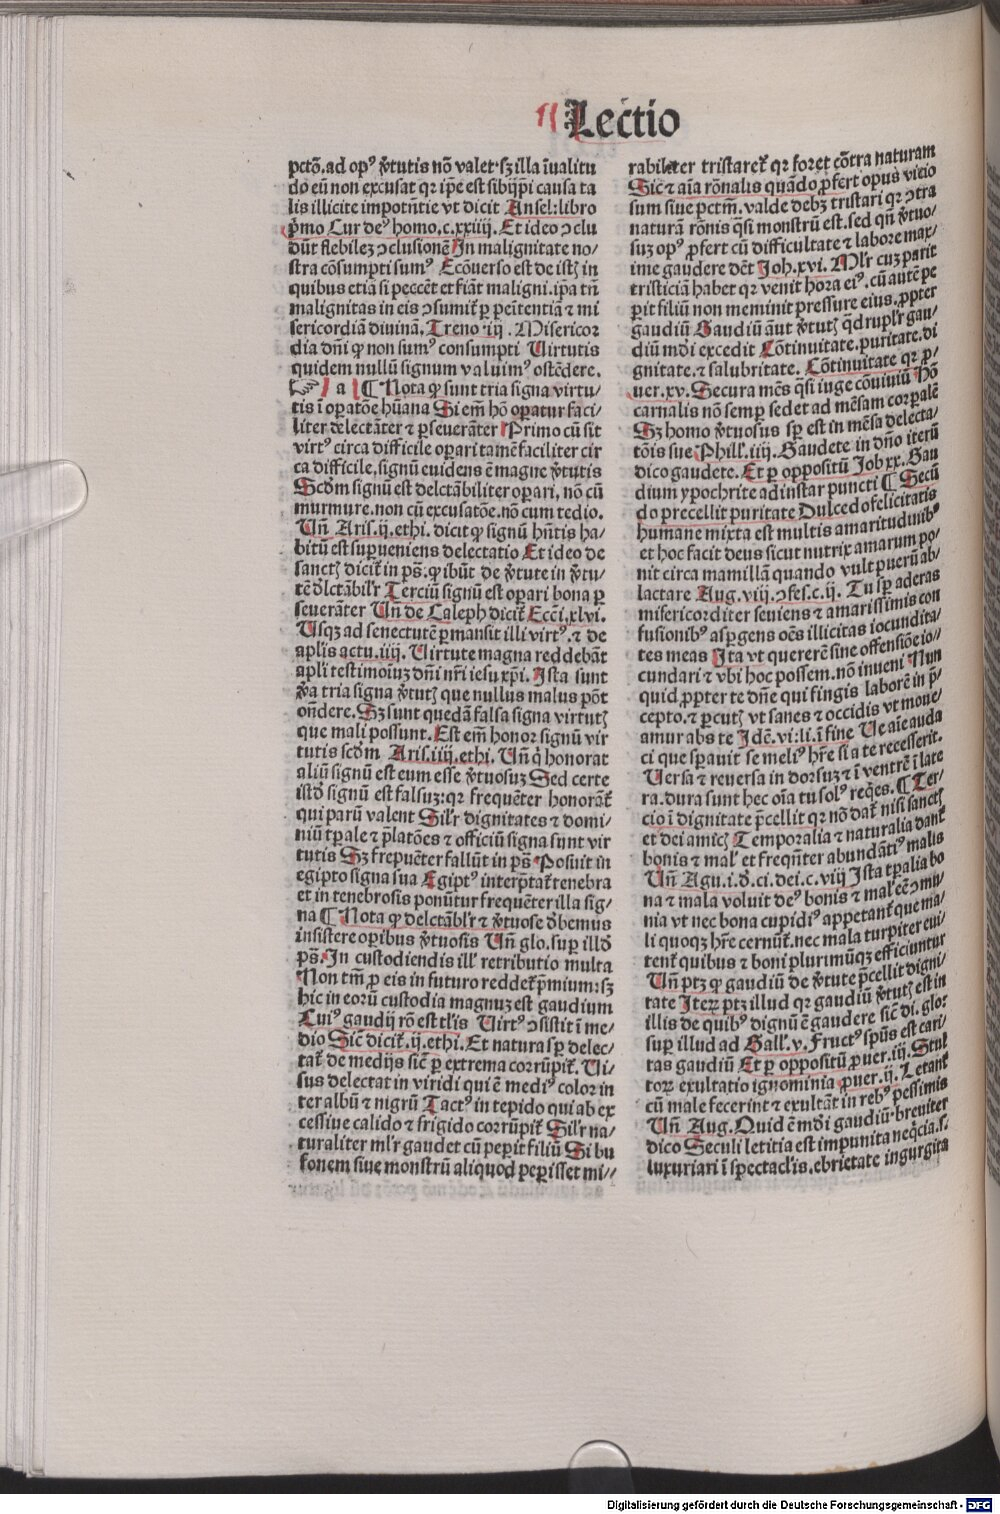 ¶ Lectio
pctō.ad opꝰ v̾tutis nō valet.sꝫ illa īualitu
do eū non excusat qꝛ ip̄e est sibijp̄i causa ta
lis illicite impotn̄tie vt dicit Ansel:libro
p̄mo Cur deꝰ homo.c.xxiiij. Et ideo ↄclu
dūt flebileꝫ ↄclusionē In malignitate no⸗
stra cōsumpti sumꝰ Ecōuerso est de istꝭ in
quibus etiā si peccēt et fiāt maligni.ipa tn̄
malignitas in eis ↄsumit̄ ꝑ penitentiā ⁊ mi
sericordiā diuinā. Treno.iij. Misericor
dia dn̄i ꝙ non sumꝰ consumpti Uirtutis
quidem nullū signum valuimꝰ ostēdere.
☞ a ¶ Nota ꝙ sunt tria signa virtu⸗
tis ī oꝑatōe hūana Si em̄ hō oꝑatur faci⸗
liter delectāter ⁊ ꝑseuerāter Primo cū sit
virtꝰ circa difficile oꝑari tamē faciliter cir
ca difficile, signū euidens ē magne v̾tutis
Scd̄m signū est delctābiliter oꝑari, nō cū
murmure.non cū excusatōe.nō cum tedio.
Un̄ Aris.ij.ethi. dicit ꝙ signū hn̄tis ha⸗
bitū est suꝑueniens delectatio Et ideo de
sanctꝭ dicit̄ in ps̄.ꝙ ibūt de v̾tute in v̾tu⸗
tē dl̄ctābil̄r Terciū signū est oꝑari bona ꝑ
seuerāter Un̄ de Caleph dicit̄ Ecci.xlvi.
Usqꝫ ad senectutē ꝑmansit illi virtꝰ.⁊ de
apl̄is actu.iiij. Uirtute magna reddebāt
apl̄i testimoiuꝫ dn̄i nr̄i iesu xp̄i. Ista sunt
v̾a tria signa v̾tutꝭ que nullus malus pōt
on̄dere. Sꝫ sunt quedā falsa signa virtutꝭ
que mali possunt. Est em̄ honor signū vir
tutis scd̄m Aris.iiij.ethi. Un̄ q̄ honorat
aliū signū est eum esse v̾tuosuꝫ Sed certe
istd̄ signū est falsuꝫ:qꝛ frequēter honorāt̄
qui parū valent Sil̄r dignitates ⁊ domi⸗
niū tꝑale ⁊ p̄latōes ⁊ officiū signa sunt vir
tutis Sꝫ frepuēter fallūt in ps̄ Posuit in
egipto signa sua Egiptꝰ interp̄tat̄ tenebra
et in tenebrosis ponūtur frequēter illa sig⸗
na ¶ Nota ꝙ delctābl̄r ⁊ v̾tuose d̄bemus
insistere oꝑibus v̾tuosis Un̄ glo.suꝑ illd̄
ps̄. In custodiendis ill̄ retributio multa
Non tm̄ ꝑ eis in futuro reddet̄ p̄mium:sꝫ
hic in eorū custodia magnuꝫ est gaudium
Cuiꝰ gaudij rō est tl̄is Uirtꝰ ↄsistit ī me⸗
dio Sic̄ dicit̄.ij.ethi. Et natura sp̄ delec⸗
tat̄ de medijs sic̄ ꝑ extrema corrūpit̄. Ui⸗
sus delectat in viridi qui ē mediꝰ color in
ter albū ⁊ nigrū Tactꝰ in tepido qui ab ex
cessiue calido ⁊ frigido corrūpit̄ Sil̄r na⸗
turaliter ml̄r gaudet cū peꝑit filiū Si bu
fonem siue monstrū aliquod peꝑisset mi⸗
rabiliter tristaret̄ qꝛ foret cōtra naturam
Sic̄ ⁊ aīa rōnalis quādo ꝓfert opus vicio
sum siue pctm̄.valde debꝫ tristari qꝛ ↄtra
naturā rōnis q̄si monstrū est.sed qn̄ v̾tuo⸗
suꝫ opꝰ ꝓfert cū difficultate ⁊ labore max⸗
ime gaudere dēt Joh.xvi. Ml̄r cuꝫ parit
tristiciā habet qꝛ venit hora eiꝰ.cū autē pe
ꝑit filiū non meminit pressure eius.ꝓpter
gaudiū Gaudiū aūt v̾tutꝭ q̄drupl̄r gau⸗
diū mūdi excedit Cōtinuitate.puritate.di
gnitate.⁊ salubritate. Cōtinuitate qꝛ ꝓ⸗
uer.xv. Secura mēs q̄si iuge cōuiuiū Hō
carnalis nō semꝑ sedet ad mēsam corꝑalē
Sꝫ homo v̾tuosus sp̄ est in mēsa delecta⸗
tōis sue Phill̄.iiij. Gaudete in dn̄o iterū
dico gaudete. Et ꝑ oppositū Job xx. Gau
dium ypochrite ad instar puncti ¶ Secū
do precellit puritate Dulcedo felicitatis
humane mixta est multis amaritudinibꝰ
et hoc facit deus sicut nutrix amarum po⸗
nit circa mamillā quando vult puerū ab⸗
lactare Aug.viij.ↄfes.c.ij. Tu sp̄ aderas
misericorditer seuiens ⁊ amarissimis con
fusionibꝰ aspergens oēs illicitas iocundita⸗
tes meas Ita vt quererē sine offensiōe io⸗
cundari ⁊ vbi hoc possem.nō inueni Nun
quid ꝓpter te dn̄e qui fingis laborē in p̄⸗
cepto.⁊ ꝑcutꝭ vt sanes ⁊ occidis vt moue⸗
amur abs te Idē.vi.li.ī fine Ue aīe auda
ci que sperauit se meliꝰ hr̄e si a te recesserit.
Uersa ⁊ reuersa in dorsuꝫ ⁊ ī ventrē ī late
ra.dura sunt hec oīa tu solꝰ req̄es. ¶ Ter⸗
cio ī dignitate p̄cellit qꝛ nō dat̄ nisi sanctꝭ
et dei amicꝭ Temporalia ⁊ naturalia dant̄
bonis ⁊ mal̄ et freqn̄ter abundātiꝰ malis
Un̄ Agu.i.d̄.ci.dei.c.viij Ista tꝑalia bo
na ⁊ mala voluit deꝰ bonis ⁊ mal̄ eē ↄmu⸗
nia vt nec bona cupidiꝰ appetant̄ que ma⸗
li quoqꝫ hr̄e cernūt̄.nec mala turpiter eui⸗
tent̄ quibus ⁊ boni plurimūqꝫ efficiuntur
Un̄ ptꝫ ꝙ gaudiū de v̾tute p̄cellit digni⸗
tate Iteꝝ ptꝫ illud qꝛ gaudiū v̾tutꝭ est in
illis de quibꝰ dignū ē gaudere sic̄ di. glos
suꝑ illud ad Gall̄.v. Fructꝰ spūs est cari⸗
tas gaudiū Et ꝑ oppositū ꝓuer.iij. Stul
toꝝ exultatio ignominia ꝓuer.ij. Letant̄
cū male fecerint ⁊ exultāt in rebꝰ pessimis
Un̄ Aug. Quid ē mūdi gaudiū.breuiter
dico Seculi letitia est impunita neq̄cia.s.
luxuriari ī spectacl̄is.ebrietate ingurgita
Digitalisierung gefördert durch die Deutsche Forschungsgemeinschaft - DFG